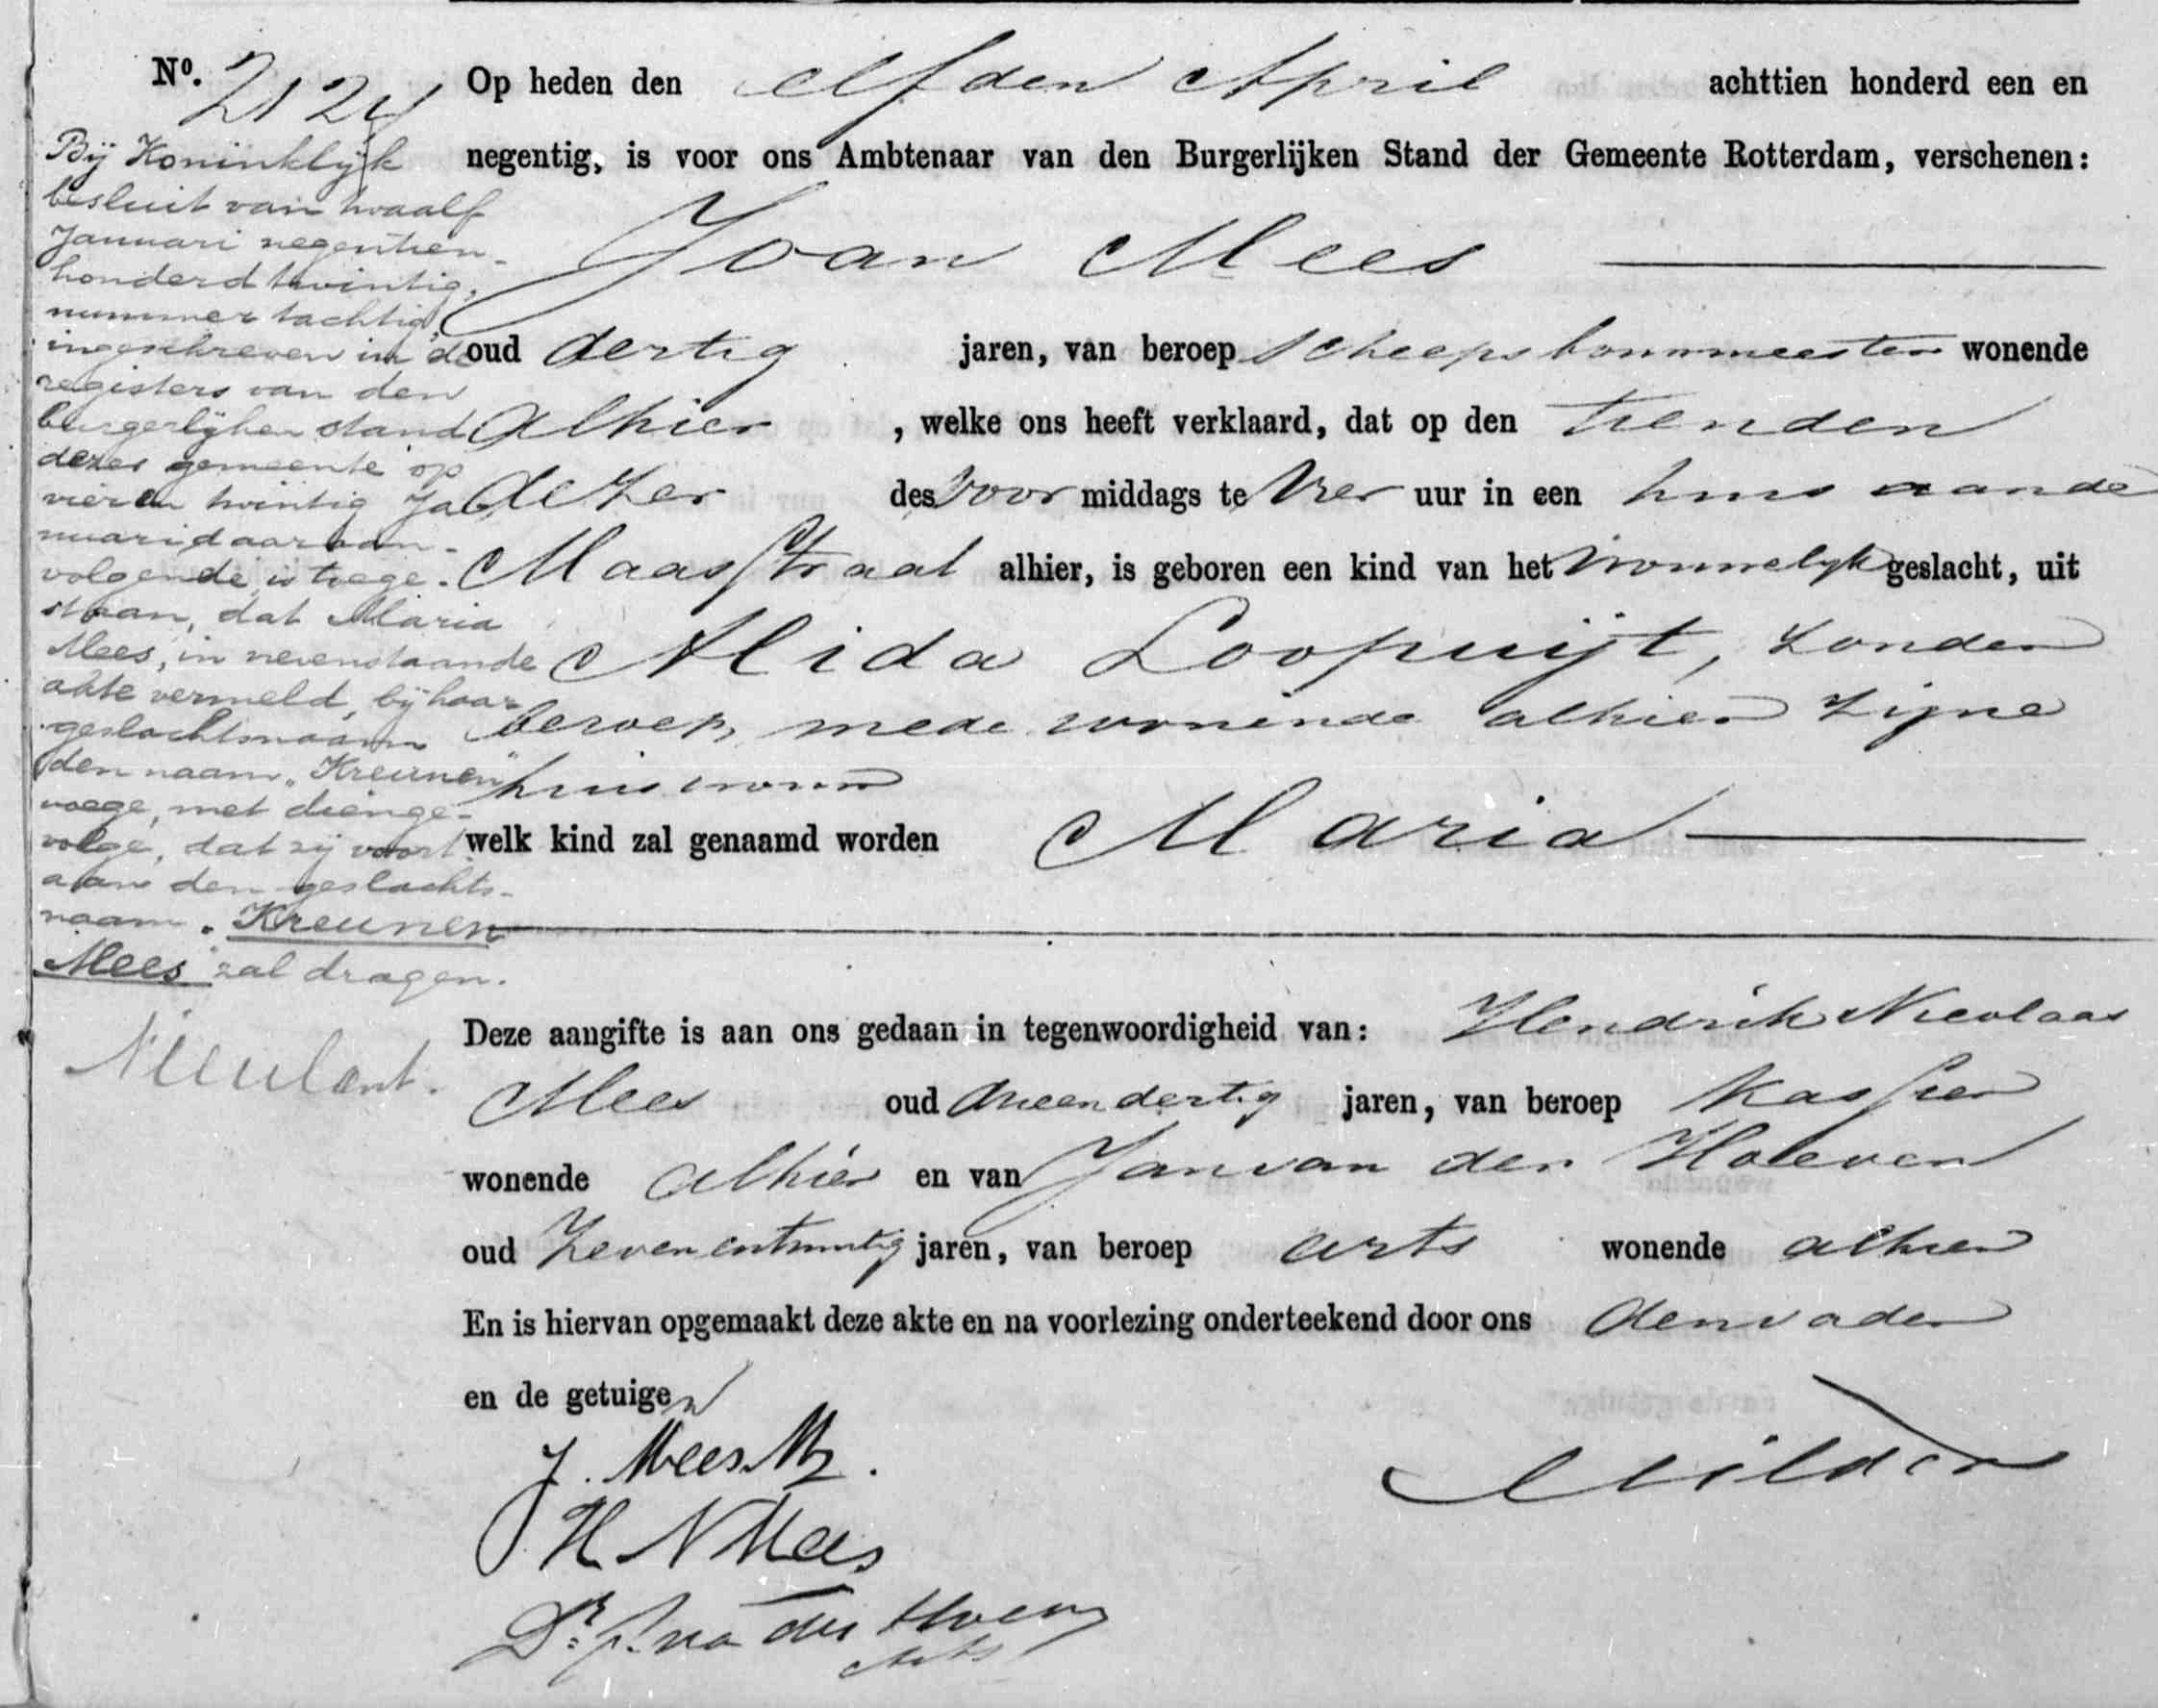 Nº. 2124
Bij Koninklijk
besluit van twaalf
Januari negentien-
honderd twintig,
nummer tachtig,
ingeschreven in de
registers van den
burgerlijken stand
dezer gemeente op
vier en twintig Ja
nuari daaraan-
volgende is toege-
staan, dat Maria
Mees, in nevenstaande
akte vermeld, bij haar
geslachtsnaam
den naam „Kreunen"
voege, met dienge-
volge, dat zij voort
aan den geslachts-
naam „Kreunen
Mees" zal dragen.
Op heden den elfden April achttien honderd een en
negentig, is voor ons Ambtenaar van den Burgerlijken Stand der Gemeente Rotterdam, verschenen:
Joan Mees
oud dertig jaren, van beroep scheepsbouwmeester wonende
alhier , welke ons heeft verklaard, dat op den tienden
dezer des voor middags te vier uur in een huis aande
Maasstraat alhier, is geboren een kind van het vrouwelijk geslacht, uit
Alida Loopuijt, zonder
beroep, mede wonende alhier zijne
huisvrouw
welk kind zal genaamd worden Maria
Deze aangifte is aan ons gedaan in tegenwoordigheid van: Hendrik Nicolaas
Mees oud drieendertig jaren, van beroep kassier
wonende alhier en van Jan van der Hoeven
oud zevenentwintig jaren, van beroep arts wonende alhier
En is hiervan opgemaakt deze akte en na voorlezing onderteekend door ons den vader
en de getuigen
J. Mees Mz.
H N Mees
Dr. J. van der Hoeven
Arts